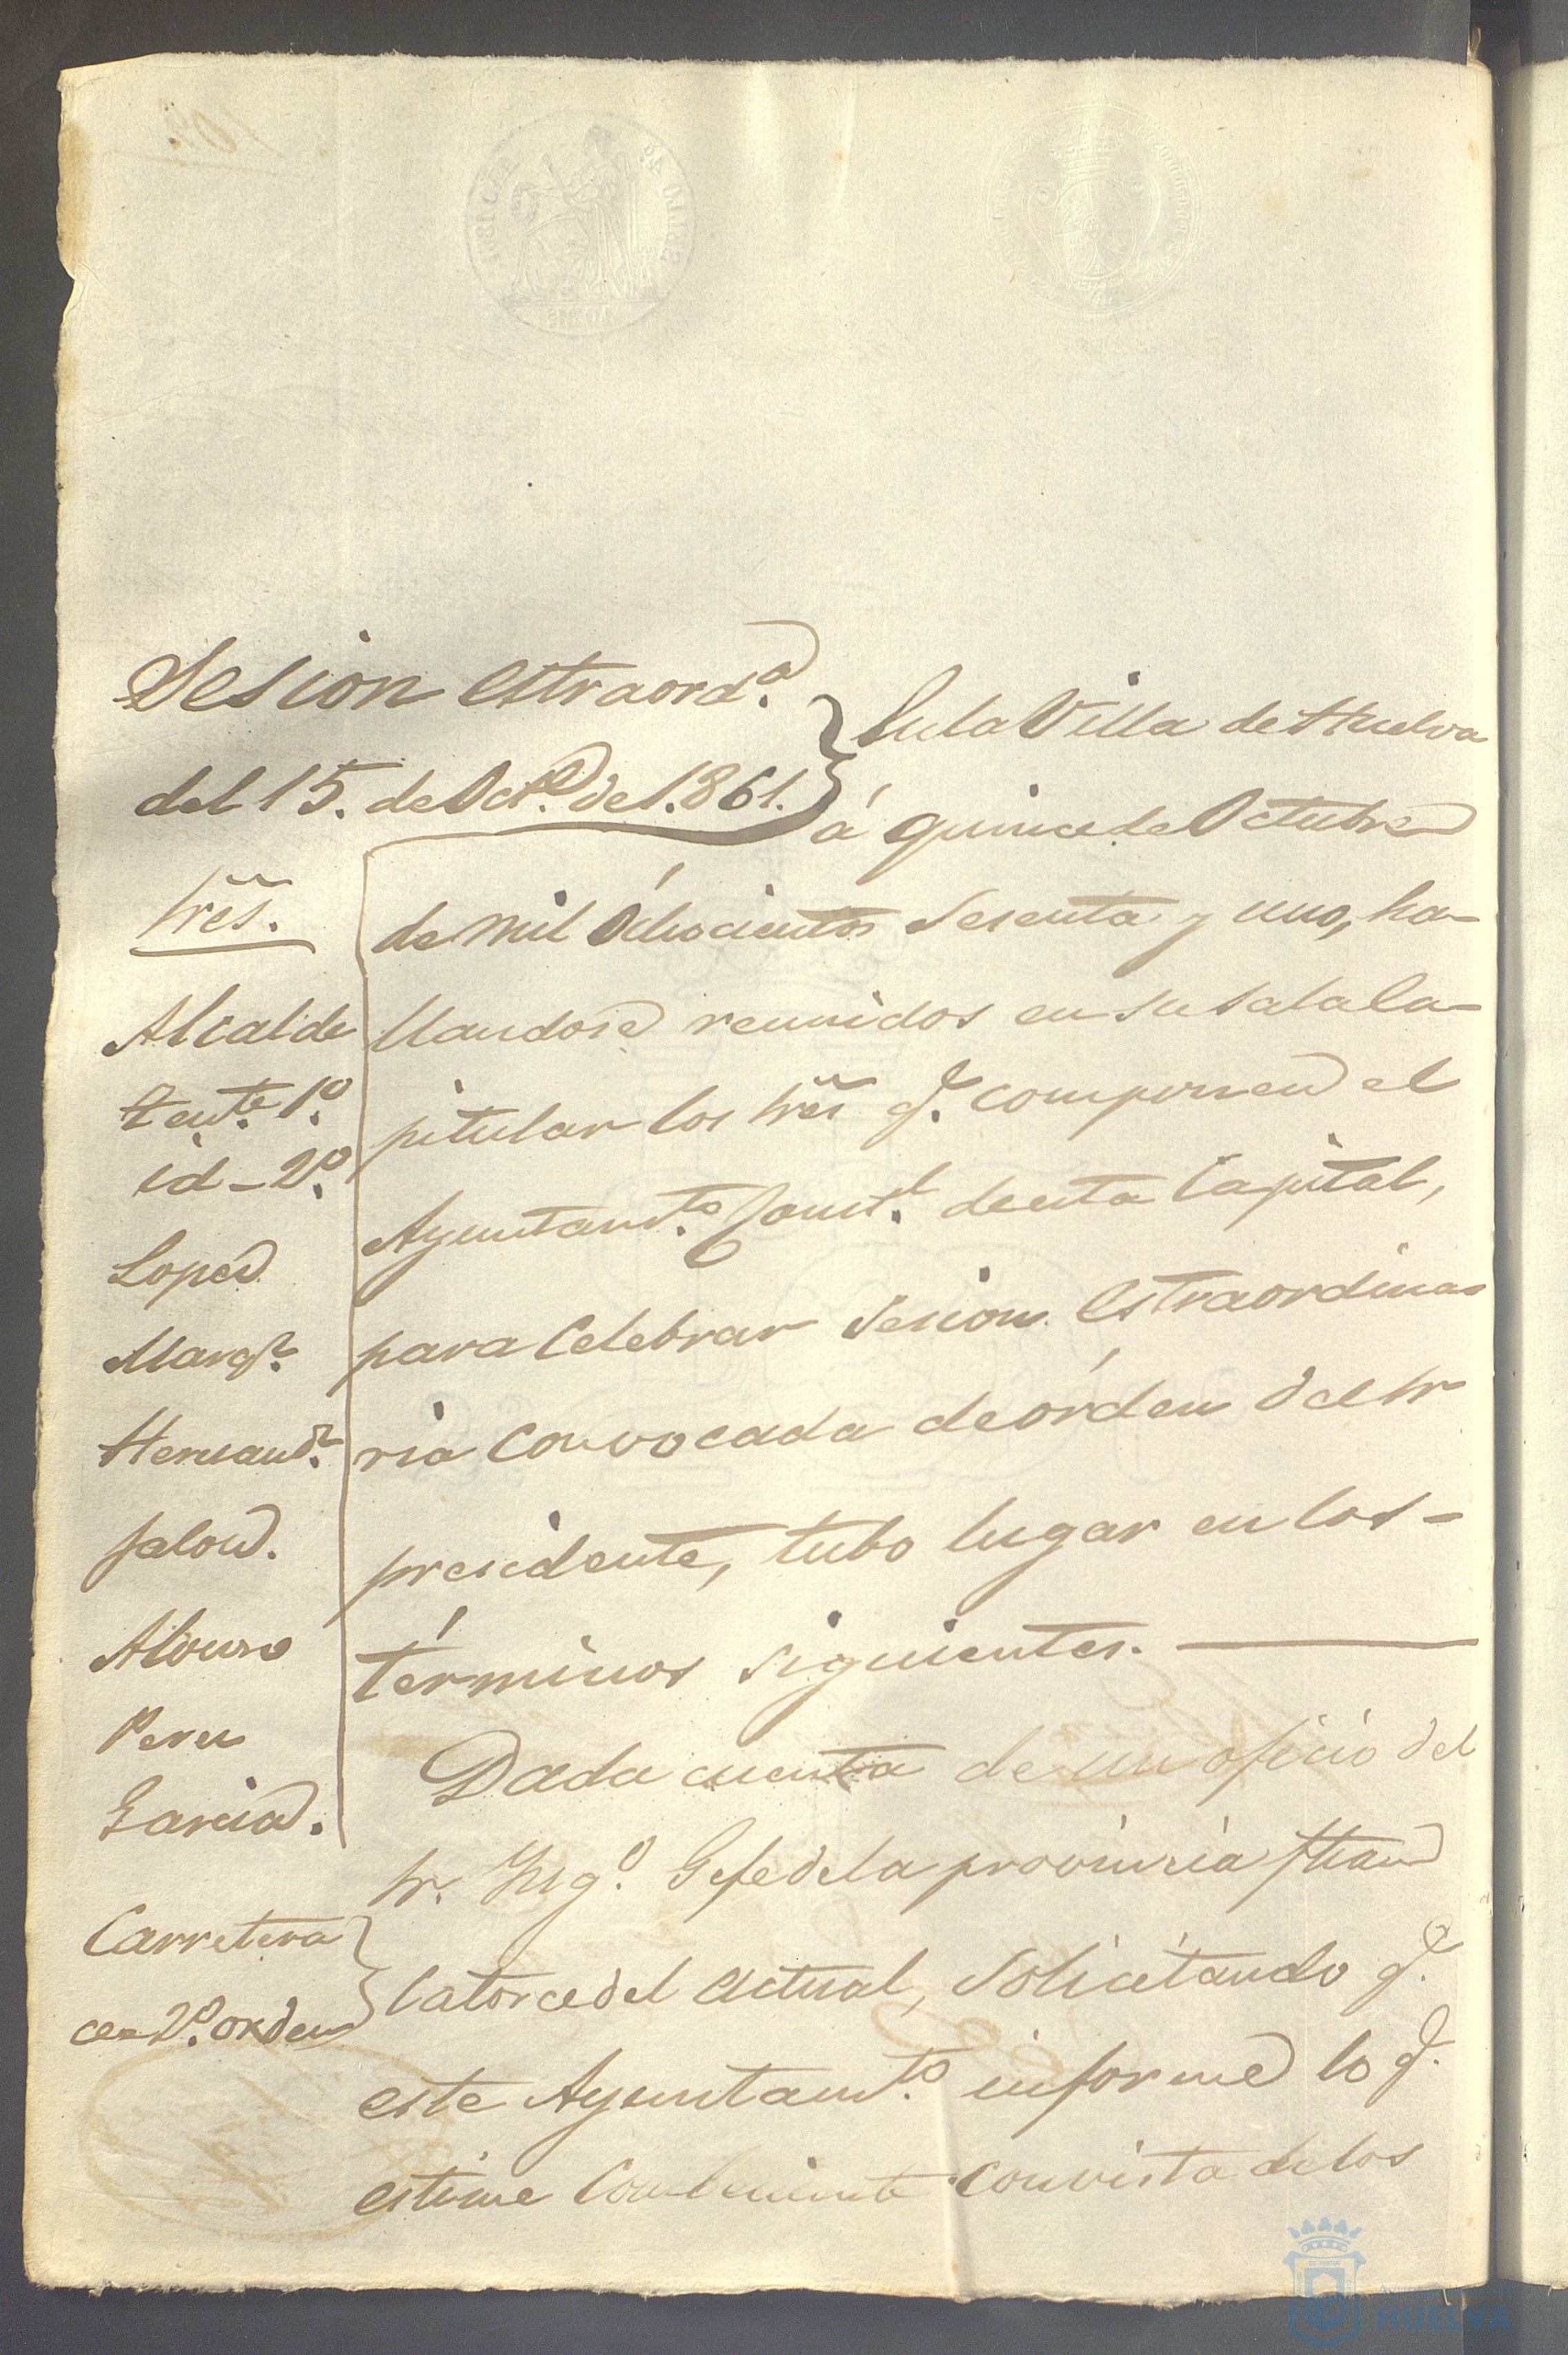 Sesion estraord.ª
del 15. de Oct.e de 1.861.
Sres.
Alcalde
Tente. 1º.
id - 2º.
Lopez
Marqz.
Hernandz.
Jalon.
Alonso
Perez
Garcia.
Carretera
de 2º. orden
En la Villa de Huelva
á quince de Octubre
de mil óchocientos sesenta y uno, ha-
llandose reunidos en su sala Ca-
pitular los Sres q.e componen el
Ayuntamto. Const.l de esta Capital,
para Celebrar sesion estraordina-
ria convocada de órden del Sr
presidente, tubo lugar en los-
términos siguientes.
Dada cuenta de un oficio del
Sr. Ingo. Gefe de la provincia fha
Catorce del actual, solicitando q.e
este Ayuntamto. informe lo q.e
estime Combeniente con vista de los
HUELVA